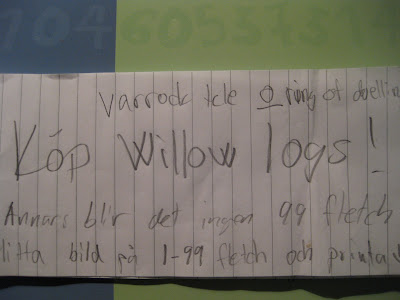 704 60557514
Varrock tele O ring of duellin
Köp Willow logs!
Annars blir det ingen 99 fletch
litta bild på 1-99 fletch och printa